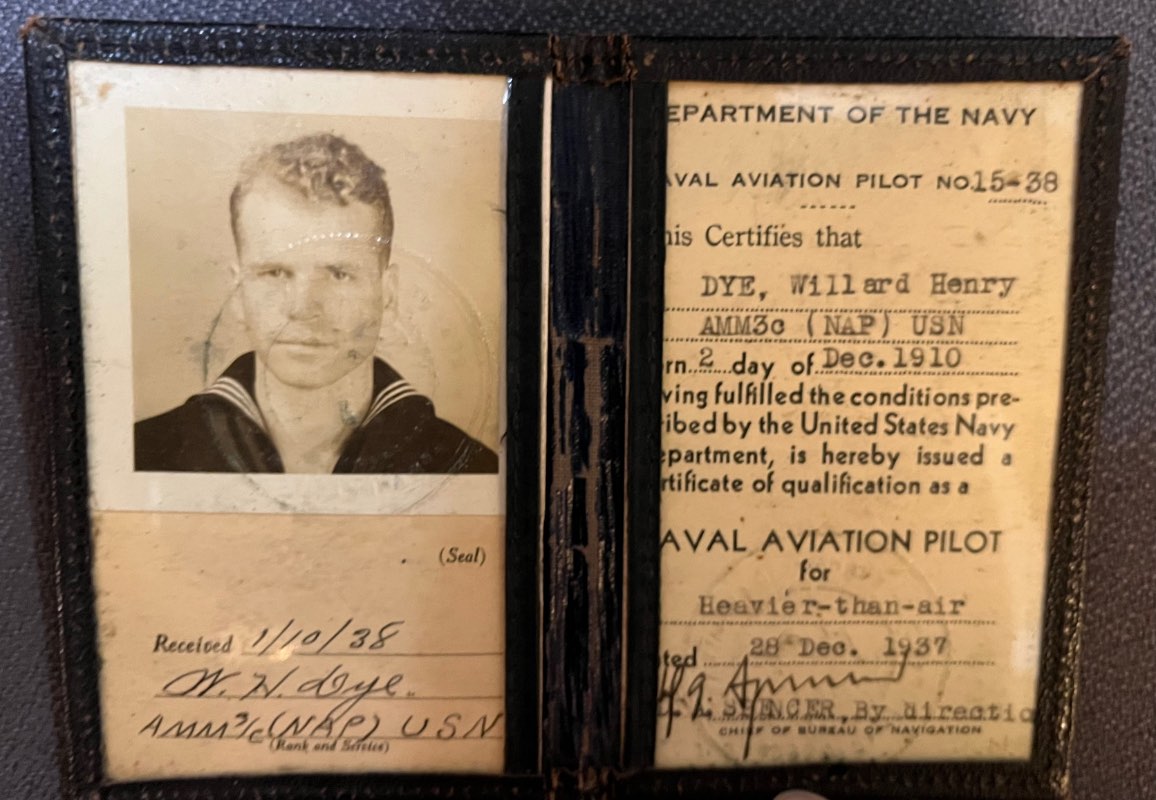 (Seal)
Received 1/10/38
W. H. Dye.
AMM3/c (NAP) USN
(Rank and Service)
EPARTMENT OF THE NAVY
AVAL AVIATION PILOT NO.15-38
his Certifies that
DYE, Willard Henry
AMM3c (NAP) USN
rn 2 day of Dec. 1910
ving fulfilled the conditions pre-
ribed by the United States Navy
epartment, is hereby issued a
rtificate of qualification as a
AVAL AVIATION PILOT
for
Heavier-than-air
ted 28 Dec. 1937
SPENCER, By directio
CHIEF OF BUREAU OF NAVIGATION